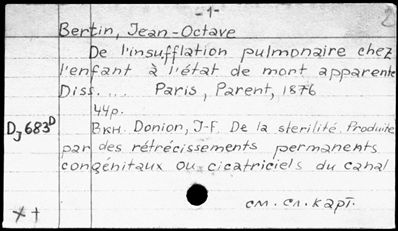 -1-
2
Bertin, Jean-Octave
De l'insufflation pulmonaire chez
l'enfant à l'état de mort apparente
Diss. ... Paris, Parent, 1876
44p.
Dj 683D
Вкн. Donion, J-F. De la sterilité. Produite
par des rétrécissements permanents
congénitaux ou cicatriciels du canal
см. сл. карт.